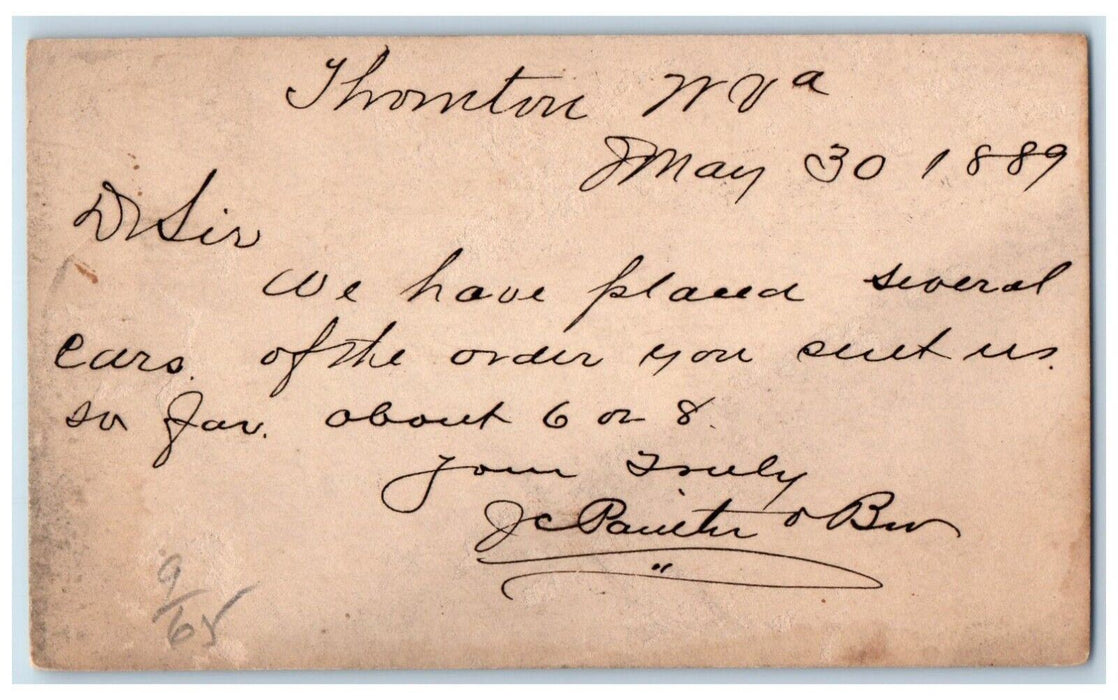 Thornton W Va
May 30 1889
Dr Sir
We have placed several
cars. of the order you sent us.
so far. about 6 or 8.
Your Truly
JC Painter & Bro
9/65